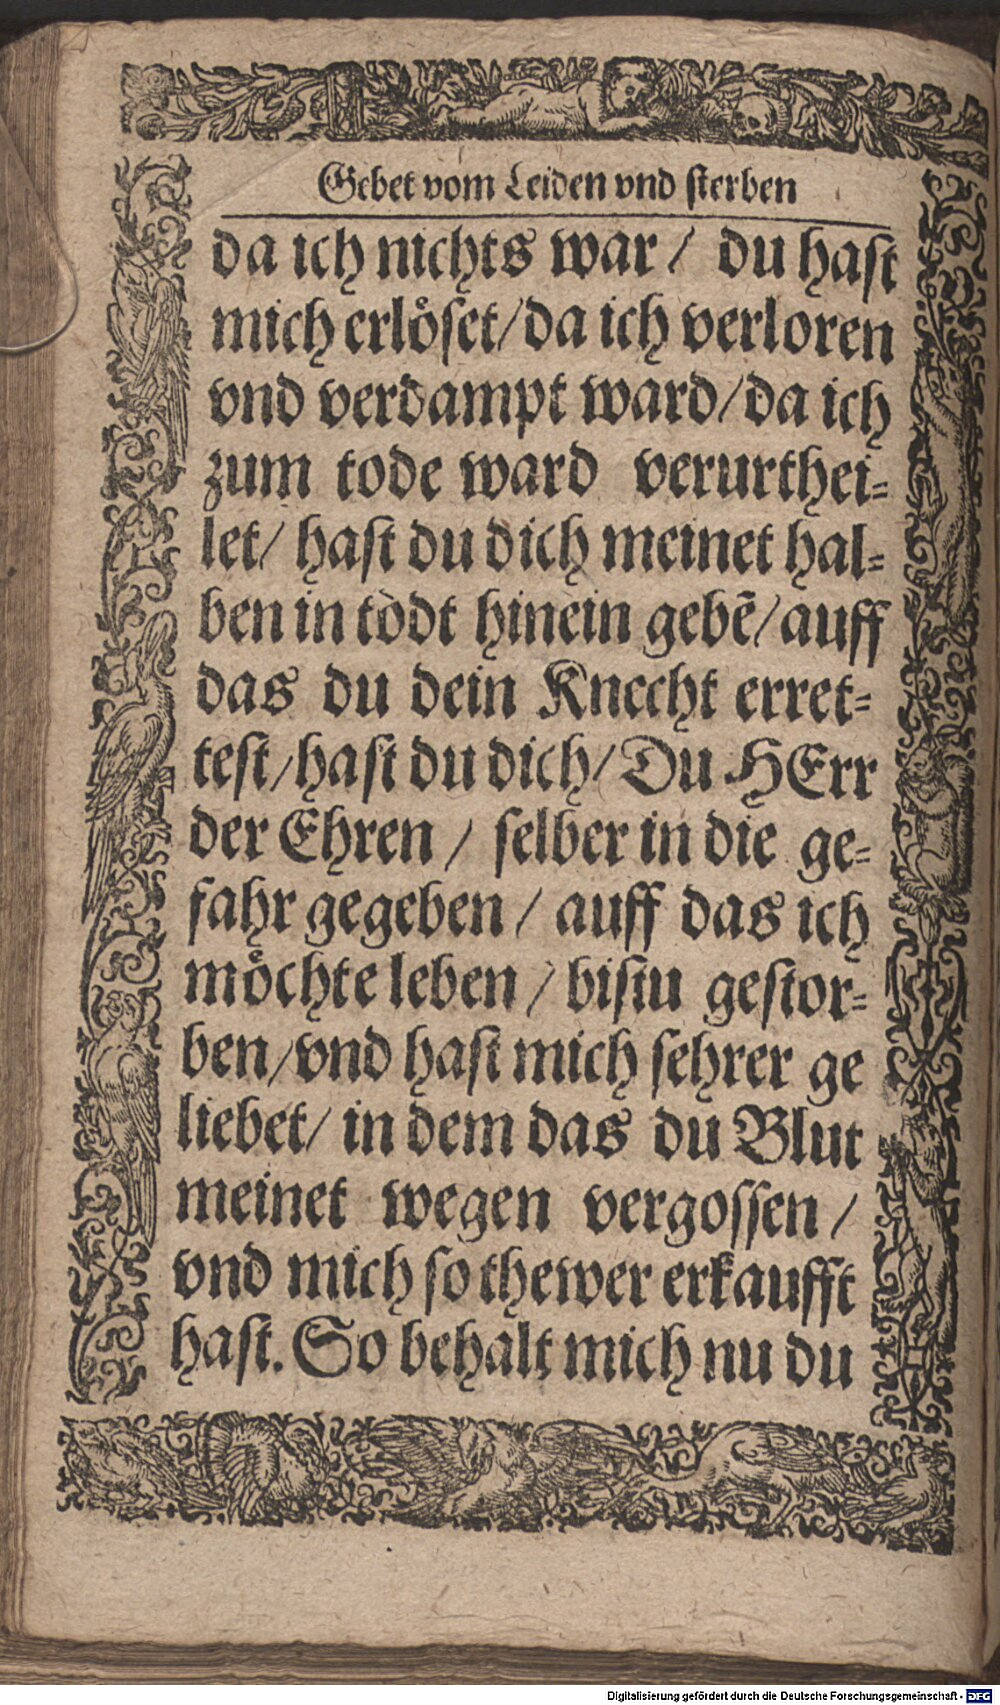 Gebet vom Leiden vnd sterben
da ich nichts war / du hast
mich erlöset/da ich verloren
vnd verdampt ward/da ich
zum tode ward verurthei-
let/ hast du dich meinet hal-
ben in tödt hinein gebē/auff
das du dein Knecht erret-
test/hast du dich/ Du HErr
der Ehren / selber in die ge-
fahr gegeben / auff das ich
möchte leben / bistu gestor-
ben/vnd hast mich sehrer ge
liebet/ in dem das du Blut
meinet wegen vergossen /
vnd mich so thewer erkaufft
hast. So behalt mich nu du
Digitalisierung gefördert durch die Deutsche Forschungsgemeinschaft - DFG